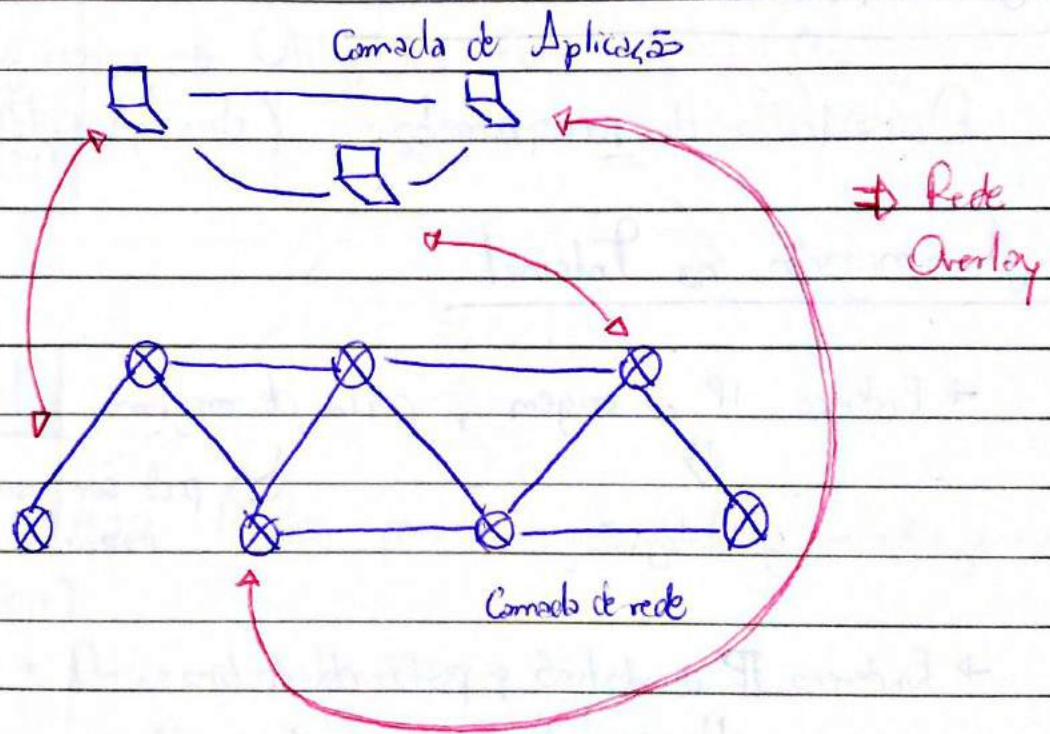 Camada de Aplicação
⇒ Rede
Overlay
Camada de rede